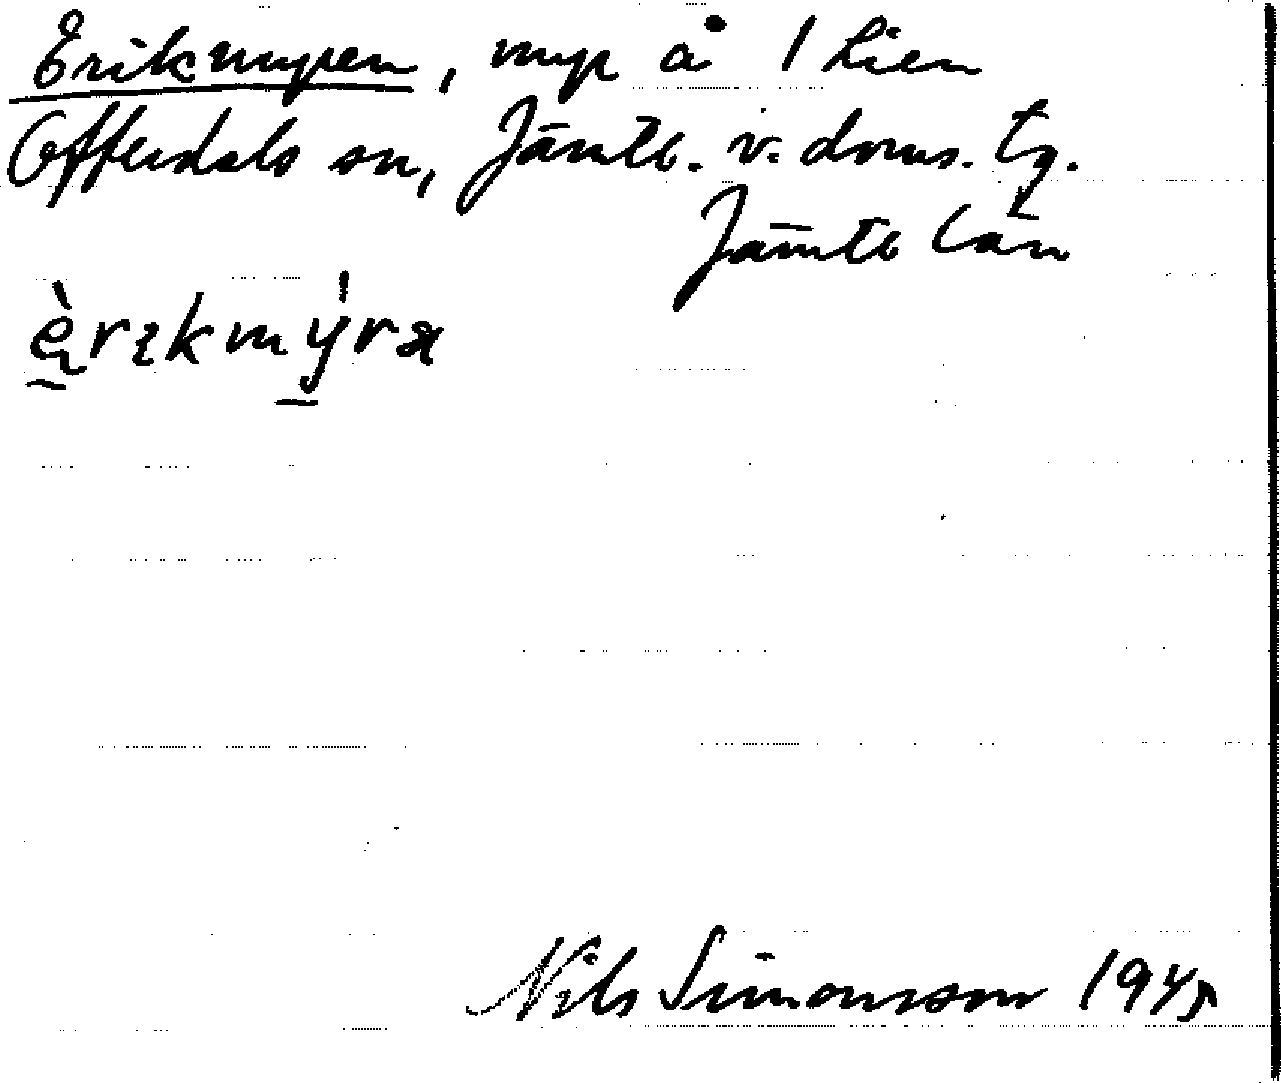 Erikmyren, myr å 1 Lien
Offerdals sn, Jämtl. v. doms. tg.
Jämtl län
Nils Simonsson 1945